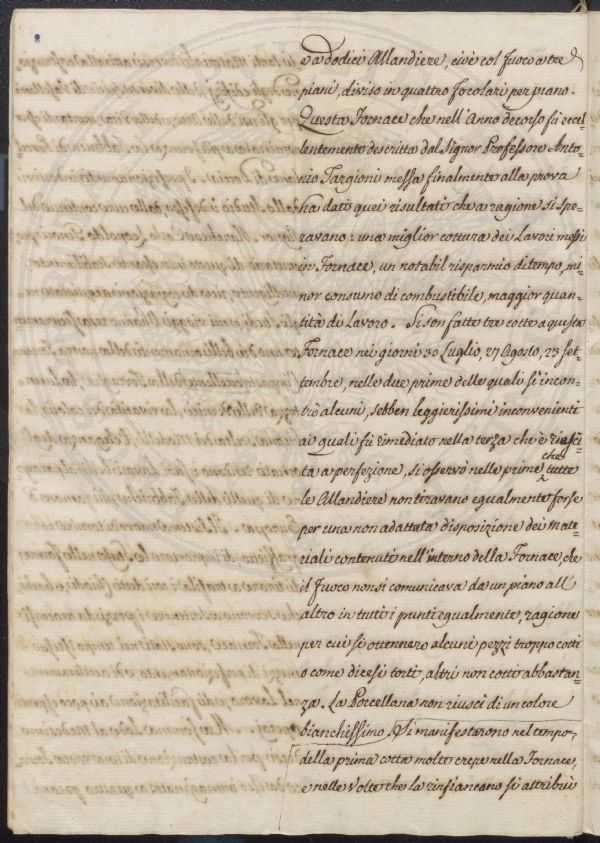 e a dodici Allandiere, cioè col fuoco a tre
piani, diviso in quattro focolari per piano.
Questa Fornace che nell'Anno decorso fù eccel=
lentemente descritta dal Signor Professore Anto=
nio Targioni messa finalmente alla prova
ha dato quei risultati che a ragione si spe=
ravano: una miglior cottura dei Lavori messi
in Fornace, un notabil risparmio di tempo, mi=
nor consumo di combustibile, maggior quan=
tità di Lavoro. Si son fatte tre cotte a questa
Fornace nei giorni 30 Luglio, 27 Agosto, 23 set=
tembre, nelle due prime delle quali si incon=
trò alcuni, sebben leggierissimi inconvenienti
ai quali fù rimediato nella terza che è riesci=
ta a perfezione, si osservò nelle prime che tutte
le Allandiere non tiravano egualmente forse
per una non adattata disposizione dei mate=
riali contenuti nell'interno della Fornace, che
il fuoco non si comunicava da un piano all'
altro in tutti i punti egualmente, ragione
per cui si ottennero alcuni pezzi troppo cotti
o come dicesi torti, altri non cotti abbastan=
za. La Porcellana non riuscì di un colore
bianchissimo. Si manifestarono nel tempo
della prima cotta molte crepe nella Fornace,
e nelle Volte che la rinfiancano si attribuì